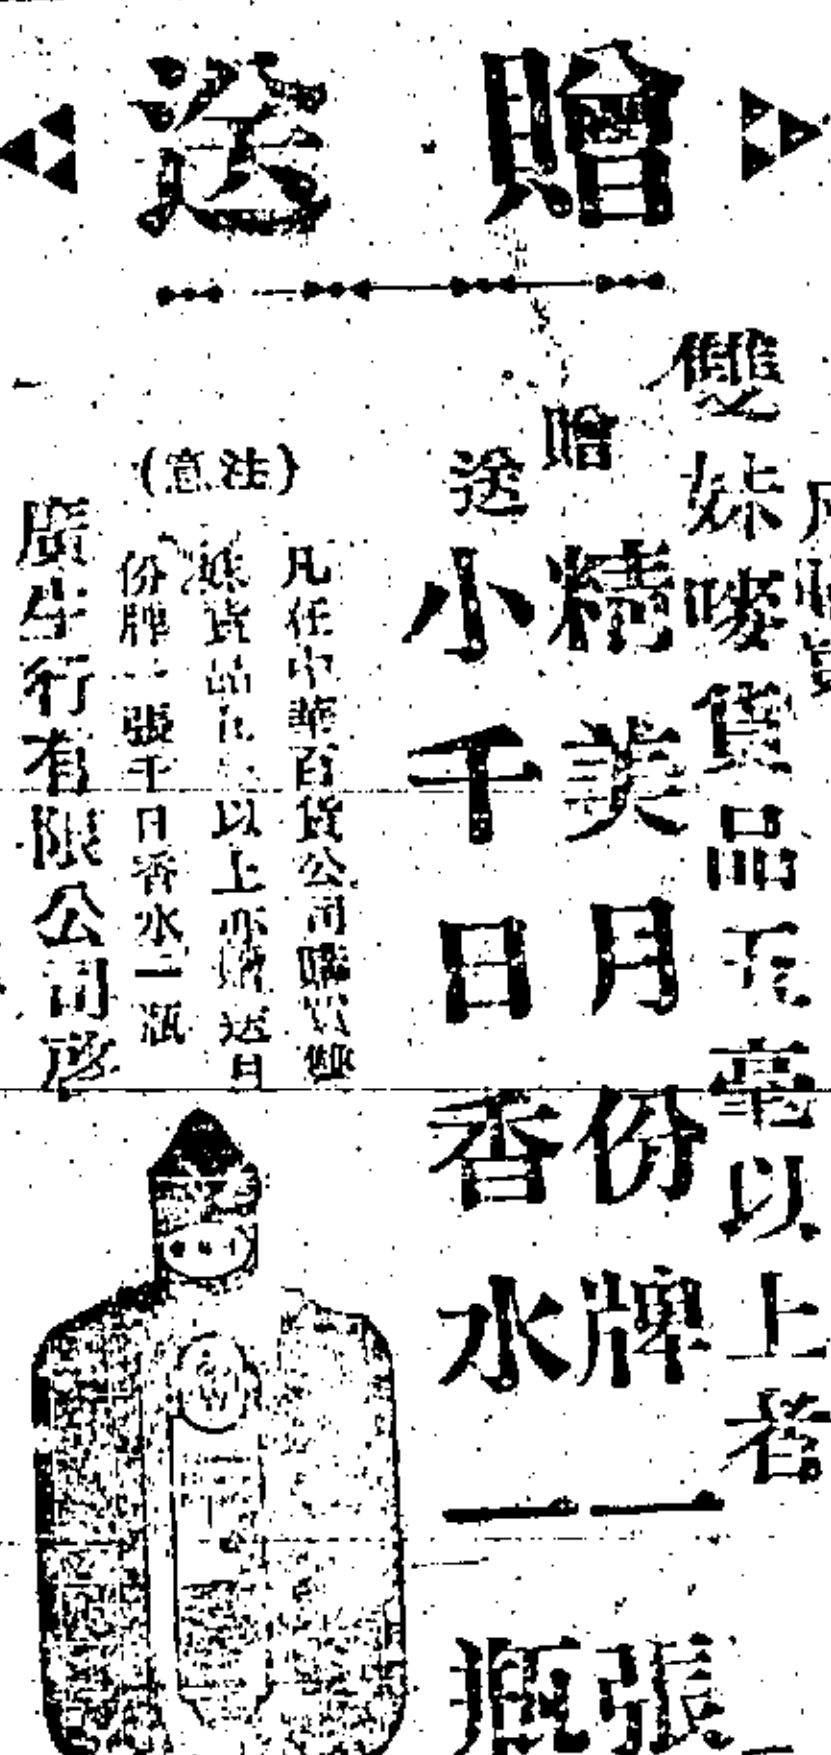 贈送
雙妹嘜貨品五毫以上者
贈精美月份牌一張
送小千日香水一瓶
(注意)
凡在中華百貨公司購買雙
妹貨品五毫以上亦贈送月
份牌一張千日香水一瓶
廣生行有限公司啓